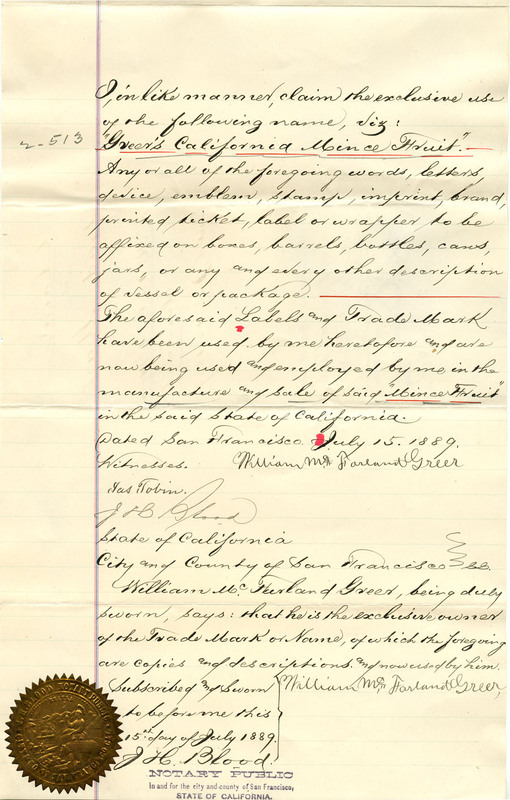 I, in like manner, claim the exclusive use
of the following name, viz:
2-513
"Greer's California Mince Fruit."
Any or all of the foregoing words, letters,
device, emblem, stamp, imprint, brand,
printed ticket, label or wrapper to be
affixed on boxes, barrels, bottles, cans,
jars, or any and every other description
of vessel or package.
The aforesaid Labels and Trade Mark
have been used by me heretofore and are
now being used and employed by me in the
manufacture and sale of said "Mince Fruit"
in the said State of California.
Dated San Francisco July 15. 1889.
Witnesses. William Mc Farland Greer
Jas Tobin.
J H Blood
State of California
City and County of San Francisco ss
William Mc Farland Greer, being duly
sworn, says: that he is the exclusive owner
of the Trade Mark or Name, of which the foregoing
are copies and descriptions and now used by him.
Subscribed and Sworn William Mc Farland Greer,
to before me this
15th day of July 1889.
J. H. Blood.
NOTARY PUBLIC
In and for the city and county of San Francisco,
STATE OF CALIFORNIA.